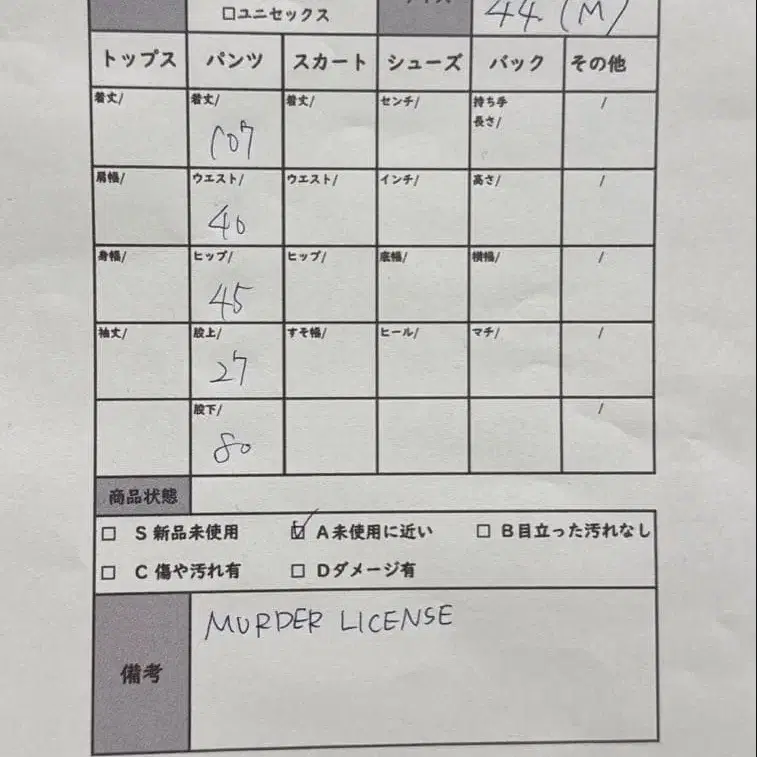 □ユニセックス
44 (M)
トップス パンツ スカート シューズ バック その他
着丈/ 着丈/ 着丈/ センチ/ 持ち手 /
長さ/
107
肩幅/ ウエスト/ ウエスト/ インチ/ 高さ/ /
40
身幅/ ヒップ/ ヒップ/ 底幅/ 横幅/ /
45
袖丈/ 股上/ すそ幅/ ヒール/ マチ/ /
27
股下/ /
80
商品状態
□ S 新品未使用 ☑ A未使用に近い □ B目立った汚れなし
□ C 傷や汚れ有 □ Dダメージ有
備考
MURDER LICENSE